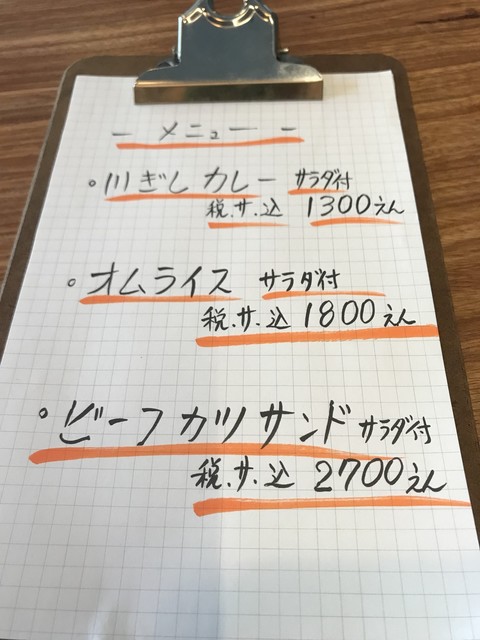 ー メニュー ー
・川ぎしカレー サラダ付
税.サ.込 1300えん
・オムライス サラダ付
税.サ.込 1800えん
・ビーフカツサンド サラダ付
税.サ.込 2700えん